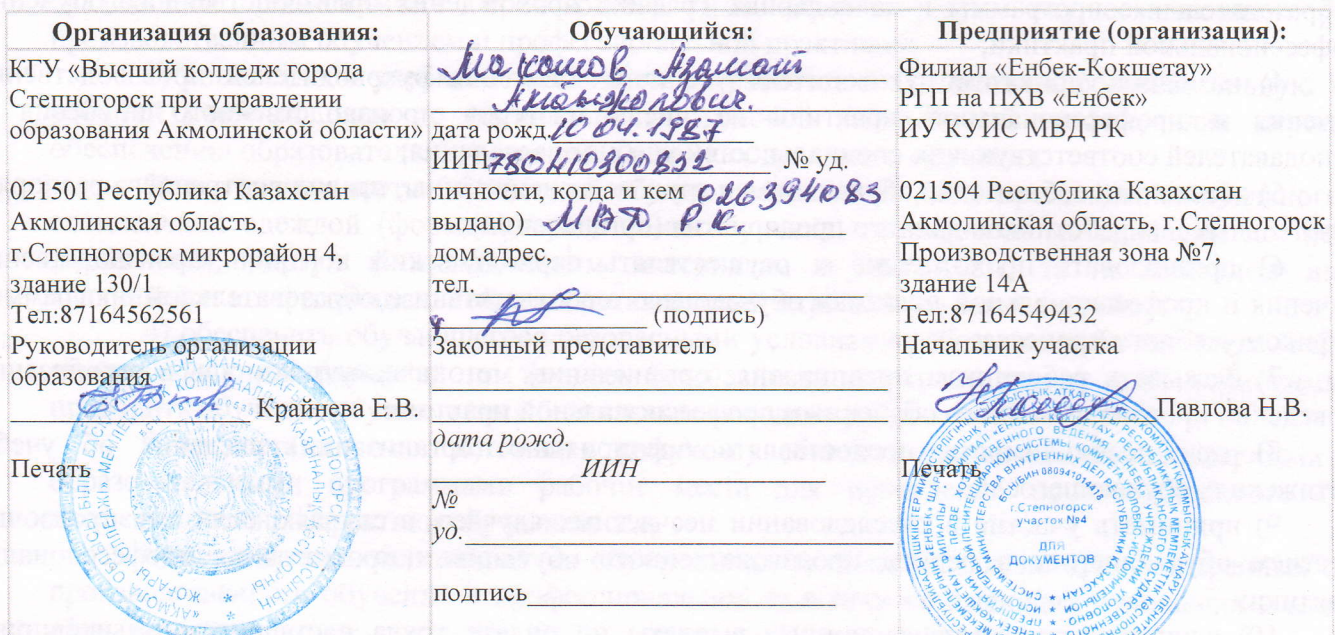 Организация образования:
КГУ «Высший колледж города
Степногорск при управлении
образования Акмолинской области»
021501 Республика Казахстан
Акмолинская область,
г.Степногорск микрорайон 4,
здание 130/1
Тел:87164562561
Руководитель организации
образования
Крайнева Е.В.
Печать
Обучающийся:
Азамат
дата рожд. 10 04. 1987
ИИН 780410300832 № уд.
личности, когда и кем 026394083
выдано) МВД Р.К.
дом.адрес,
тел.
(подпись)
Законный представитель
дата рожд.
ИИН
№
уд.
подпись
Предприятие (организация):
Филиал «Енбек-Кокшетау»
РГП на ПХВ «Енбек»
ИУ КУИС МВД РК
021504 Республика Казахстан
Акмолинская область, г.Степногорск
Производственная зона №7,
здание 14А
Тел:87164549432
Начальник участка
Павлова Н.В.
Печать
г.Степногорск
участок №4
ДЛЯ
ДОКУМЕНТОВ